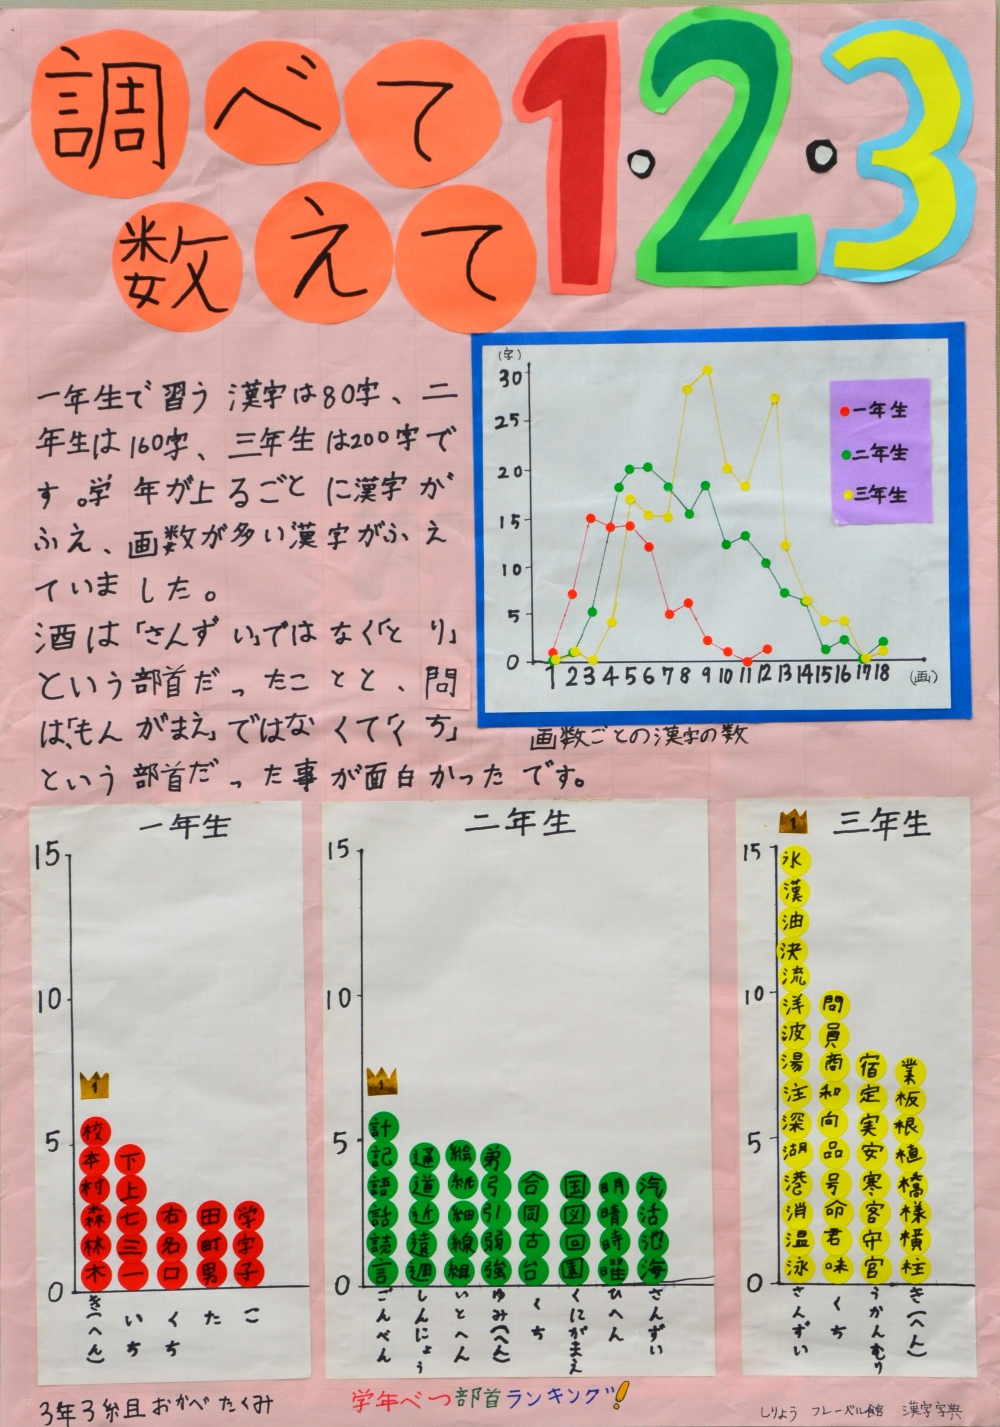 調べて
数えて
1・2・3
一年生で習う漢字は80字、二
年生は160字、三年生は200字で
す。学年が上るごとに漢字が
ふえ、画数が多い漢字がふえ
ていました。
酒は「さんずい」ではなく「とり」
という部首だったことと、問
は「もんがまえ」ではなくて「くち」
という部首だった事が面白かったです。
(字)
30
25
20
15
10
5
0
1 2 3 4 5 6 7 8 9 10 11 12 13 14 15 16 17 18 (画)
一年生
二年生
三年生
画数ごとの漢字の数
一年生
15
10
5
0
1
校本村森林木
下上七三一
右名口
田町男
学字子
き(へん)
いち
くち
た
こ
二年生
15
10
5
0
1
計記語話読言
通道近遠週
絵紙細線組
弟弓引弱強
合同古台
国図回園
明晴時曜
汽活池海
ごんべん
しんにょう
いとへん
ゆみ(へん)
くち
くにがまえ
ひへん
さんずい
1
三年生
15
10
5
0
氷漢油決流洋波湯注深湖港消温泳
問員商和向品号命君味
宿定実安寒客守宮
業板根植橋様横柱
さんずい
くち
うかんむり
き(へん)
3年3組 おかべ たくみ
学年べつ部首ランキング!
しりょう フレーベル館 漢字字典